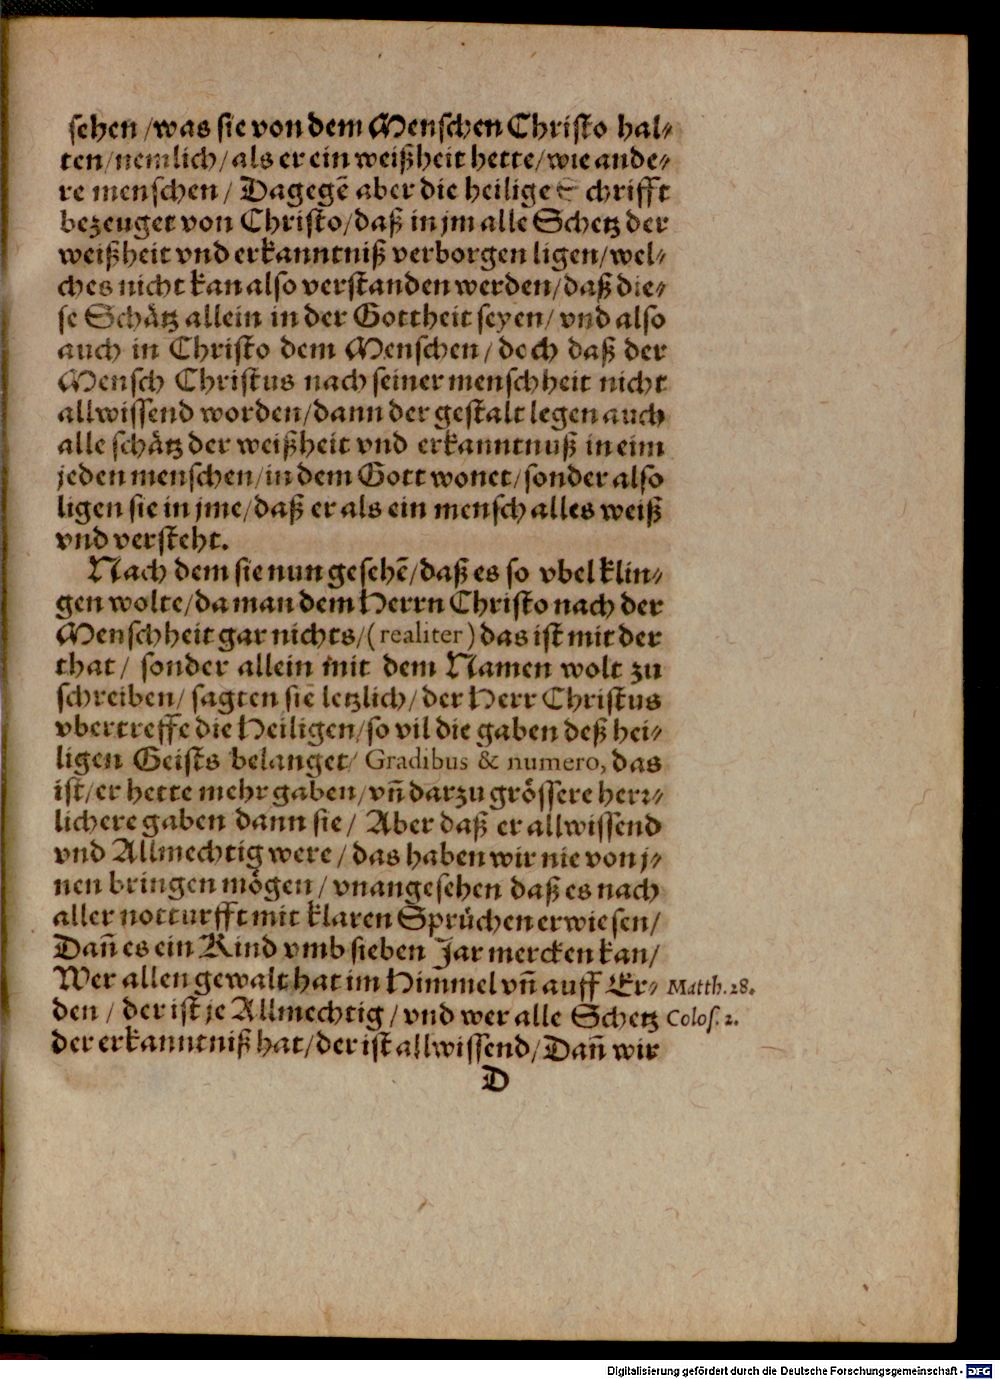 sehen/was sie von dem Menschen Christo hal⸗
ten/nemlich/als er ein weißheit hette/wie ande⸗
re menschen/ Dagegē aber die heilige Schrifft
bezeuget von Christo/daß in jm alle Schetz der
weißheit vnd erkanntniß verborgen ligen/wel⸗
ches nicht kan also verstanden werden/daß die⸗
se Schätz allein in der Gottheit seyen/ vnd also
auch in Christo dem Menschen/ doch daß der
Mensch Christus nach seiner menschheit nicht
allwissend worden/dann der gestalt legen auch
alle schätz der weißheit vnd erkanntnuß in eim
jeden menschen/in dem Gott wonet/sonder also
ligen sie in jme/daß er als ein mensch alles weiß
vnd versteht.
Nach dem sie nun gesehē/daß es so vbel klin⸗
gen wolte/da man dem Herrn Christo nach der
Menschheit gar nichts/(realiter) das ist mit der
that/ sonder allein mit dem Namen wolt zu
schreiben/ sagten sie letzlich/ der Herr Christus
vbertreffe die Heiligen/so vil die gaben deß hei⸗
ligen Geists belanget/ Gradibus & numero, das
ist/er hette mehr gaben/vñ darzu grössere herꝛ⸗
lichere gaben dann sie/ Aber daß er allwissend
vnd Allmechtig were/das haben wir nie von j⸗
nen bringen mögen/ vnangesehen daß es nach
aller notturfft mit klaren Sprüchen erwiesen/
Dañ es ein Kind vmb sieben Jar mercken kan/
Wer allen gewalt hat im Himmel vñ auff Er⸗ Matth. 28.
den/ der ist je Allmechtig/vnd wer alle Schetz Colos. 2.
der erkanntniß hat/der ist allwissend/Dañ wir
D
Digitalisierung gefördert durch die Deutsche Forschungsgemeinschaft - DFG